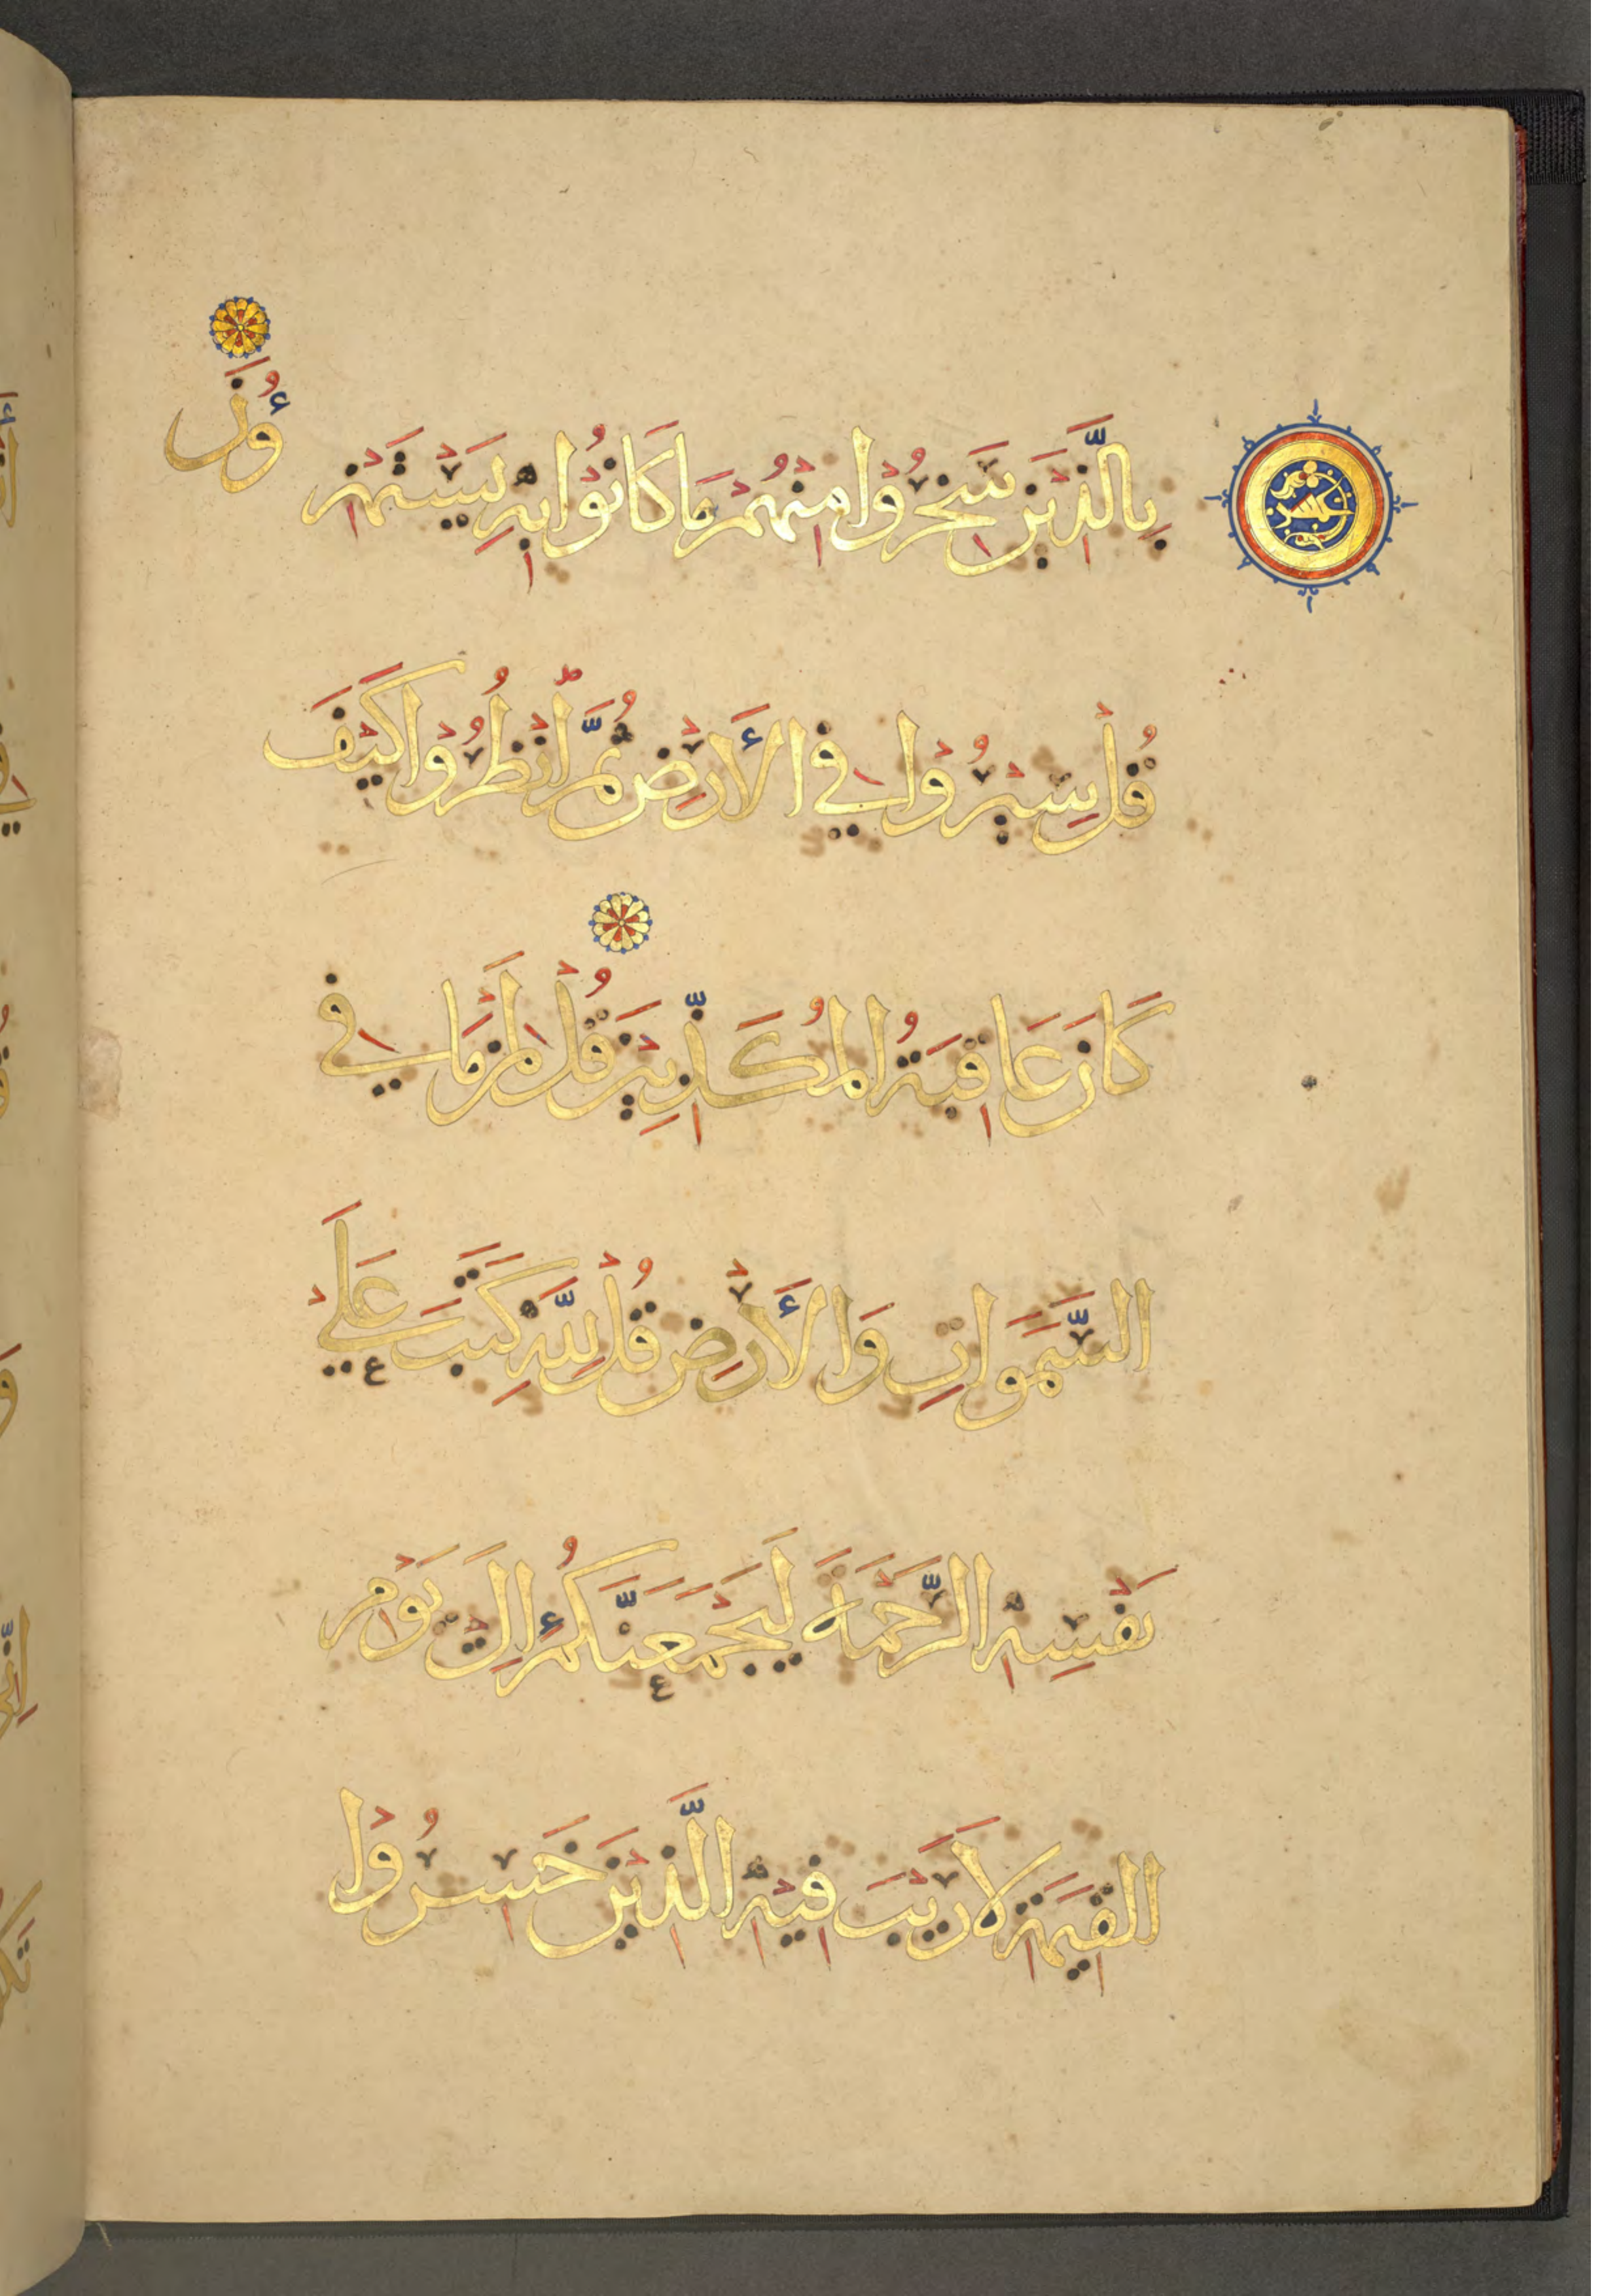 بِالَّذِينَ سَخِرُوْا مِنْهُمْ مَا كَانُوْا بِهِ يَسْتَهْزِءُونَ
قُلْ سِيْرُوْا فِي الْأَرْضِ ثُمَّ انْظُرُوْا كَيْفَ
كَانَ عَاقِبَةُ الْمُكَذِّبِيْنَ قُلْ لِمَنْ مَا فِي
السَّمَوَاتِ وَالْأَرْضِ قُلْ لِلَّهِ كَتَبَ عَلَى
نَفْسِهِ الرَّحْمَةَ لَيَجْمَعَنَّكُمْ إِلَى يَوْمِ
الْقِيَمَةِ لَا رَيْبَ فِيْهِ الَّذِيْنَ خَسِرُوْا